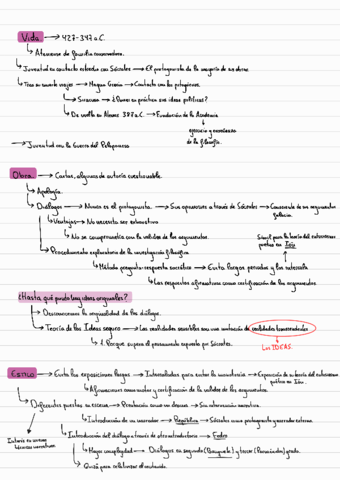 Vida → 427-347 a.C.
Ateniense de familia conservadora.
Juventud en contacto estrecho con Sócrates → El protagonista de la mayoría de sus obras.
Tras su muerte viajó → Magna Grecia → Contacto con los pitagóricos.
Siracusa → ¿Poner en práctica sus ideas políticas?
De vuelta en Atenas 387 a.C. → Fundación de la Academia
ejercicio y enseñanza
de la filosofía.
→ Juventud con la Guerra del Peloponeso
Obra → Cartas, algunas de autoría cuestionable.
Apología.
Diálogos → Nunca es el protagonista. → Sin opiniones a través de Sócrates → Consciente de sus argumentos
Ventajas → No necesita ser exhaustivo
No se compromete con la validez de los argumentos.
Símil para la teoría del entusiasmo
poético en Ión
Procedimiento exploratorio de la investigación filosófica
Método pregunta-respuesta socrático → Evita largos periodos y los intercala
Las respuestas afirmativas como certificación de los argumentos.
¿Hasta qué punto hay ideas originales?
Desconocemos la originalidad de los diálogos.
Teoría de las Ideas seguro → Las realidades sensibles son una imitación de realidades trascendentales
Las IDEAS.
Porque supera el pensamiento expuesto por Sócrates.
Estilo → Evita las exposiciones largas → Intercaladas para evitar la monotonía → Exposición de su teoría del entusiasmo
poético en Ión.
Afirmaciones como motor y certificación de la validez de los argumentos.
Diferentes puestas en escena → Presentación como un drama → Sin intervención narrativa.
Introducción de un narrador → República → Sócrates como protagonista y narrador externo.
Introducción del diálogo a través de otro introductorio → Fedro
Interés en nuevas
técnicas narrativas.
Mayor complejidad → Diálogos en segundo (Banquete) y tercer (Parménides) grado.
Quizá para relativizar el contenido.